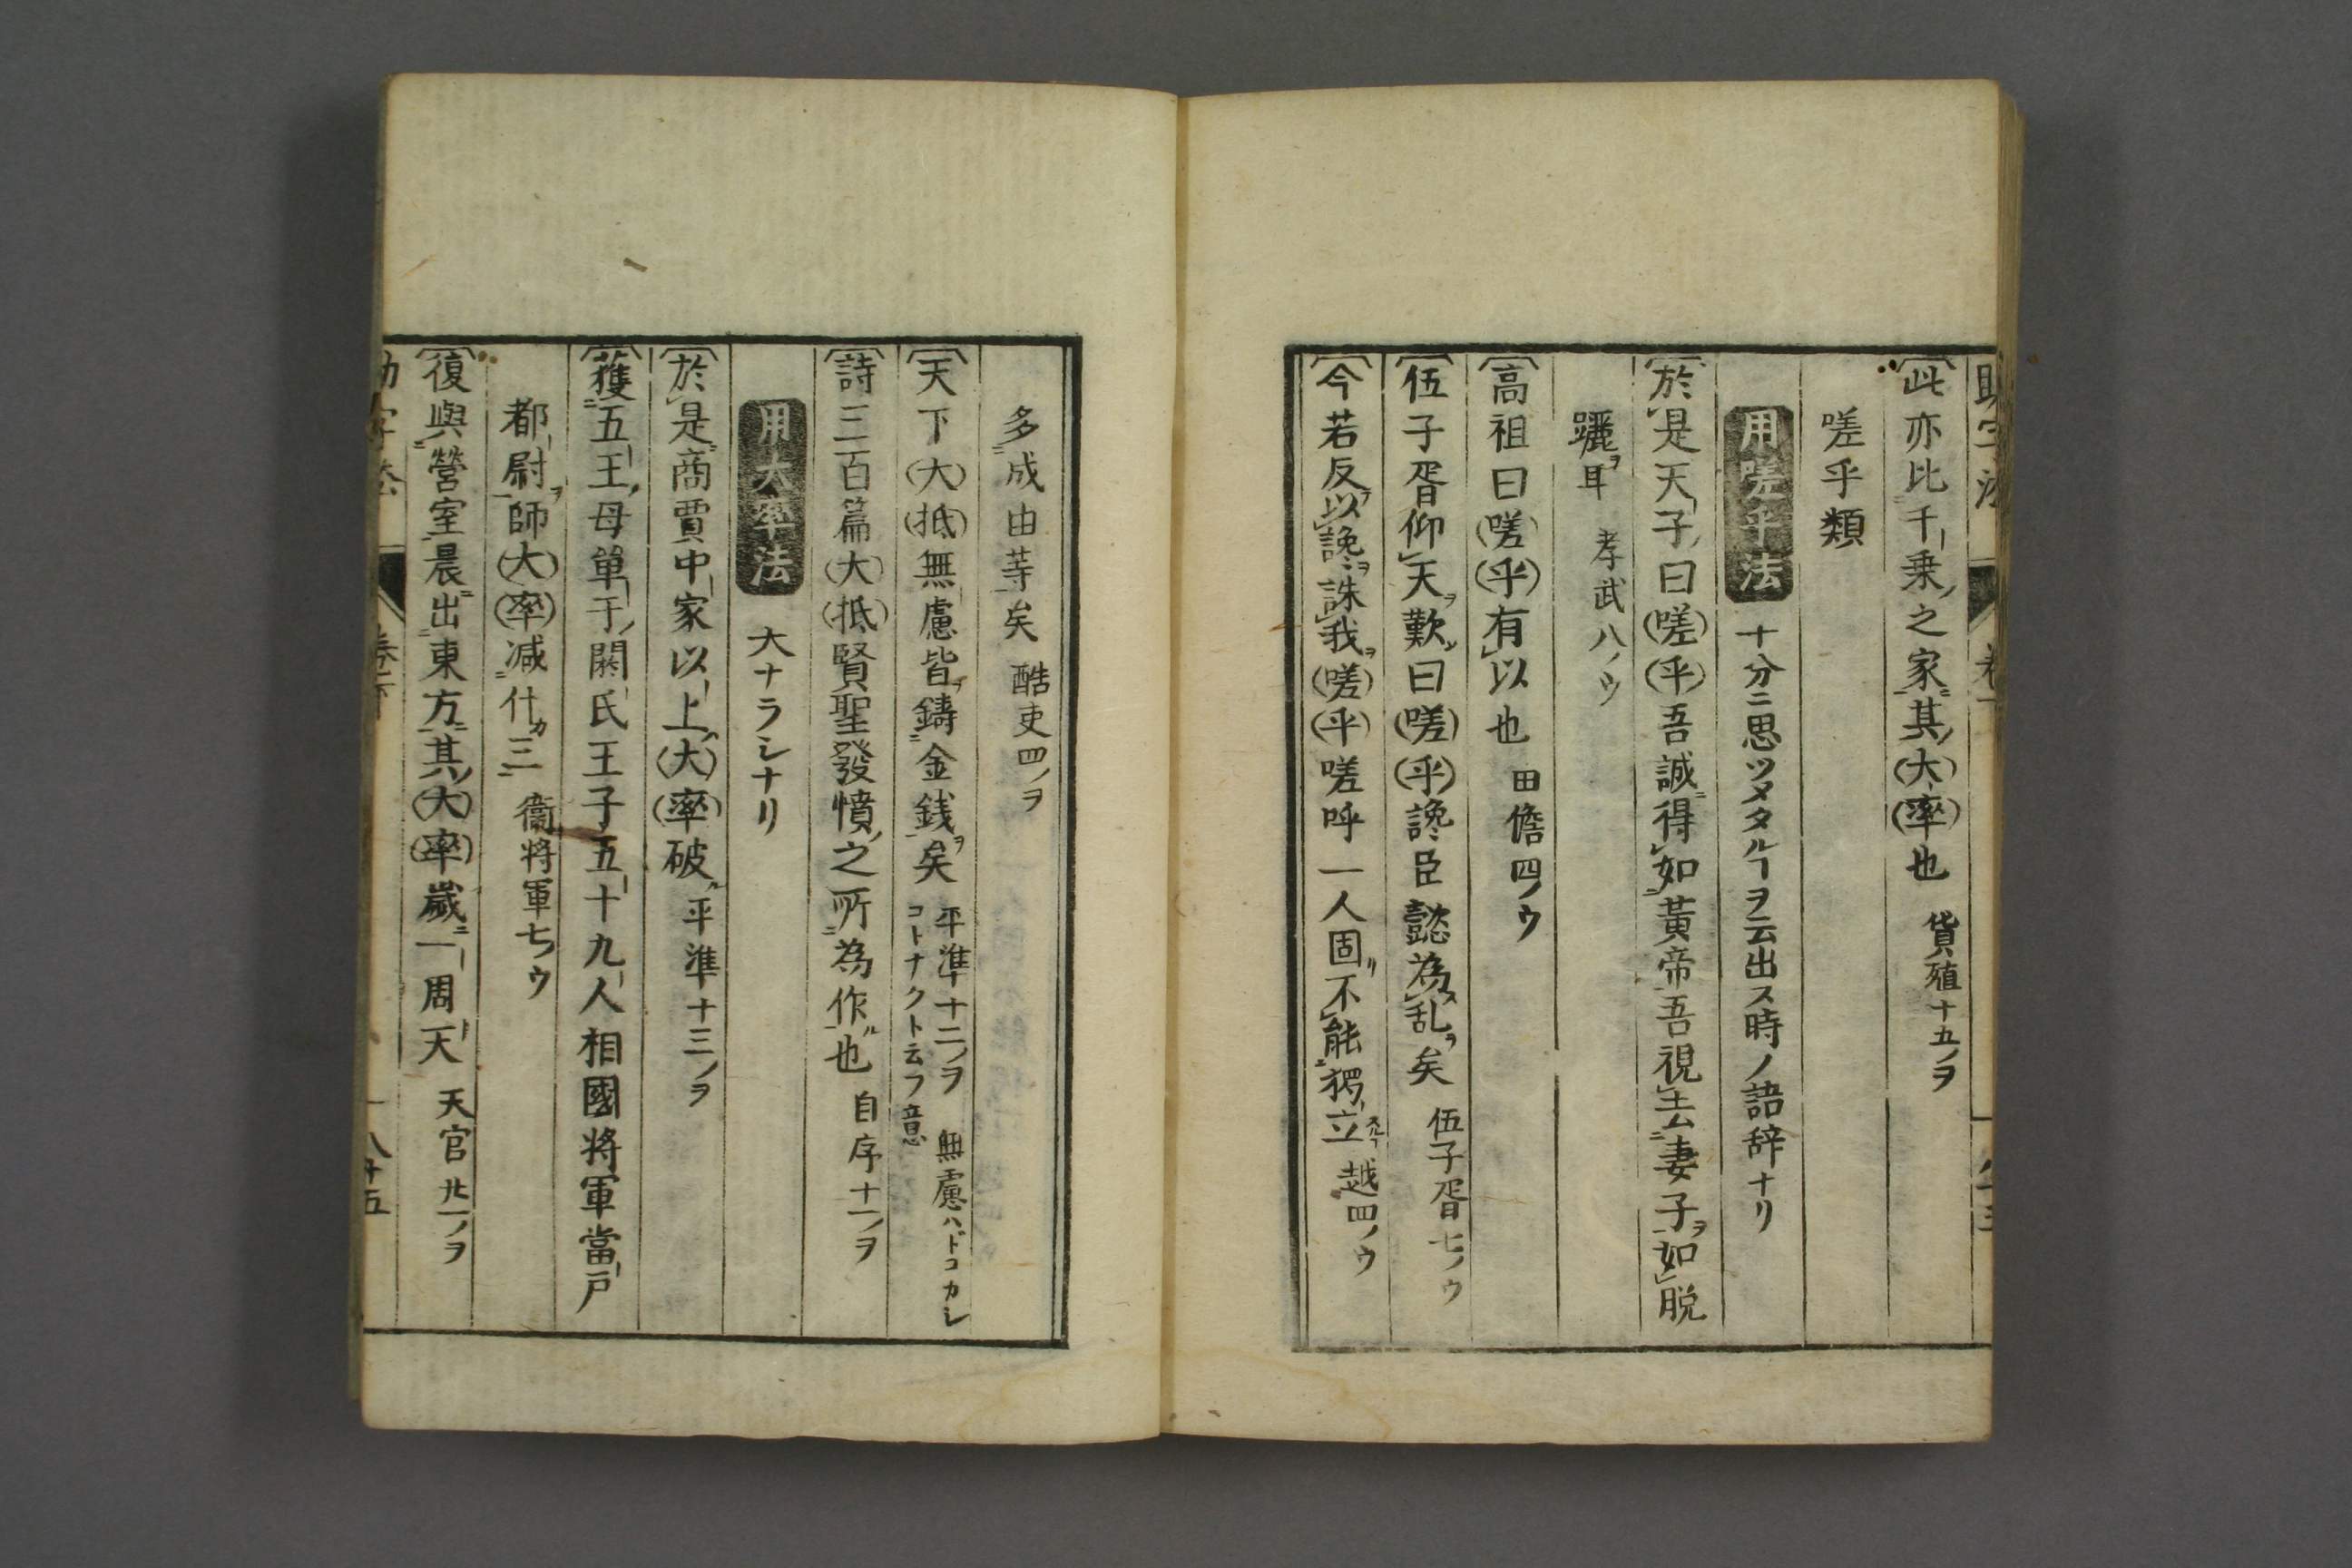 此亦比千乗之家其大率也 貨殖十五ノヲ
嗟乎類
用嗟乎法 十分ニ思ツメタルヿヲ云出ス時ノ語辞ナリ
於是天子曰(嗟)(乎)吾誠得如黃帝吾視去妻子如脱
躧耳 孝武八ノウ
高祖曰(嗟)(乎)有以也 田儋四ノウ
伍子胥仰天歎曰(嗟)(乎)讒臣嚭為乱矣 伍子胥七ノウ
今若反以讒誅我(嗟)(乎)嗟呼一人固不能独立 越四ノウ
多成由等矣 酷吏四ノヲ
天下(大)(抵)無慮皆鋳金銭矣 平準十二ノヲ 無慮ハドコカシコトナクト云フ意
詩三百篇(大)(抵)賢聖發憤之所為作也 自序十一ノヲ
用大率法 大ナラシナリ
於是商賈中家以上(大)(率)破 平準十三ノヲ
獲五王母単于閼氏王子五十九人相國将軍當戸
都尉師(大)(率)減什三 衛将軍七ノウ
復與營室晨出東方其(大)(率)歲一周天 天官廿一ノヲ